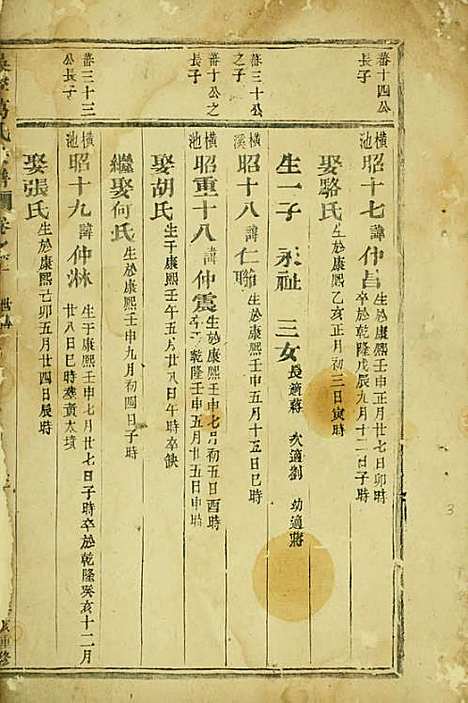 蕃十四公
長子
橫池
昭十七諱仲昌
生於康熙壬申正月廿七日卯時
卒於乾隆戊辰九月十二日子時
娶駱氏
生於康熙乙亥正月初三日寅時
生一子 永祉 三女
長適蔣 次適劉 幼適蔣
蕃三十公
之子
橫溪
昭十八諱仁聯
生於康熙壬申五月十五日巳時
蕃十公之
長子
橫池
昭重十八諱仲震
生於康熙壬申七月初五日酉時
卒於乾隆壬申五月廿五日申時
娶胡氏
生于康熙壬午五月廿八日午時卒缺
繼娶何氏
生于康熙壬申九月初四日子時
蕃三十三
公長子
橫池
昭十九諱仲淋
生于康熙壬申七月廿七日子時卒於乾隆癸亥十二月
廿八日巳時葬黃太墳
娶張氏
生於康熙己卯五月廿四日辰時
氏
重修
3